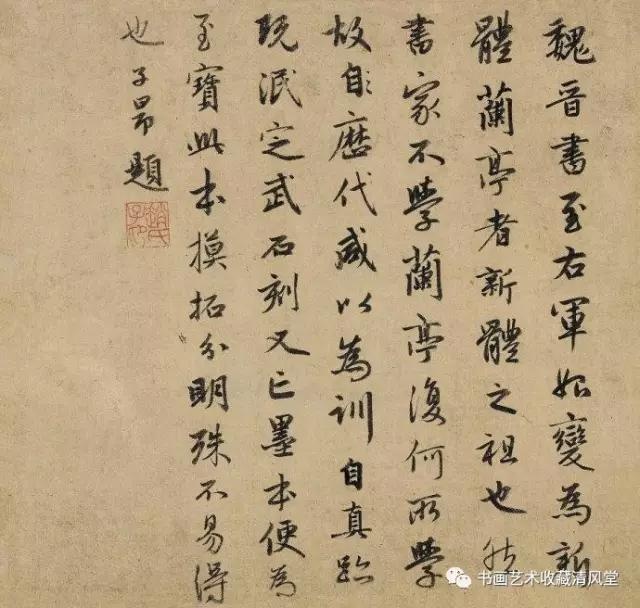 魏晉書至右軍始變為新
體蘭亭者新體之祖也然
書家不學蘭亭復何所學
故自歷代咸以為訓自真跡
既泯定武石刻又亡墨本便為
至寶此本摸拓分明殊不易得
也子昂題
趙氏子昂
书画艺术收藏清风堂